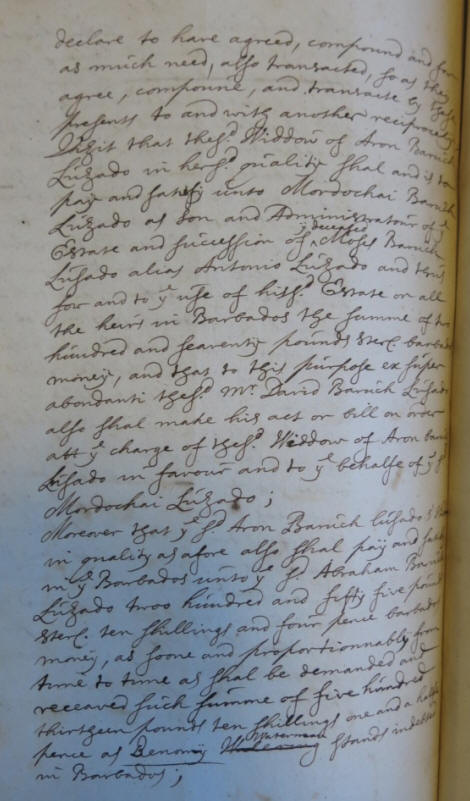 declare to have agreed, compound and for
as much need, also transacted, so as they
agree, compoune, and transacte by these
presents to and with another reciprocally
Digit that thes.d Widdow of Aron Baruch
Luzado in hers.d quality shal and is to
pay and satesfy unto Mordochai Baruch
Luzado as Son and Administratour of ye
Estate and succession of ye deceased Moses Baruch
Lusado alias Antonio Luzado and thus
for and to ye use of hiss.d Estate or all
the heirs in Barbados the summe of two
hundred and seaventy pounds sterl: barbad
money, and that to this purpose ex super
abondanti thes.d Mr. David Baruch Lusado
also shal make his act or bill on order
att ye charge of thes.d Widdow of Aron baruch
Lusado in favour and to ye behalfe of ye s.d
Mordochai Luzado;
Moreover that ye s.d Aron Baruch lusado's
in quality as afore also shal pay and satesfy
in ye Barbados unto ye s.d Abraham Baruch
Luzado twoo hundred and fifty five pound
sterl: ten shillings and four pence barbados
money, as soone and proportionnably from
time to time as shal be demanded and
receaved such summe of five hundred
thirteen pounds ten shillings one and a halfe
pence as Benony Waterman stands indebted
in Barbados;